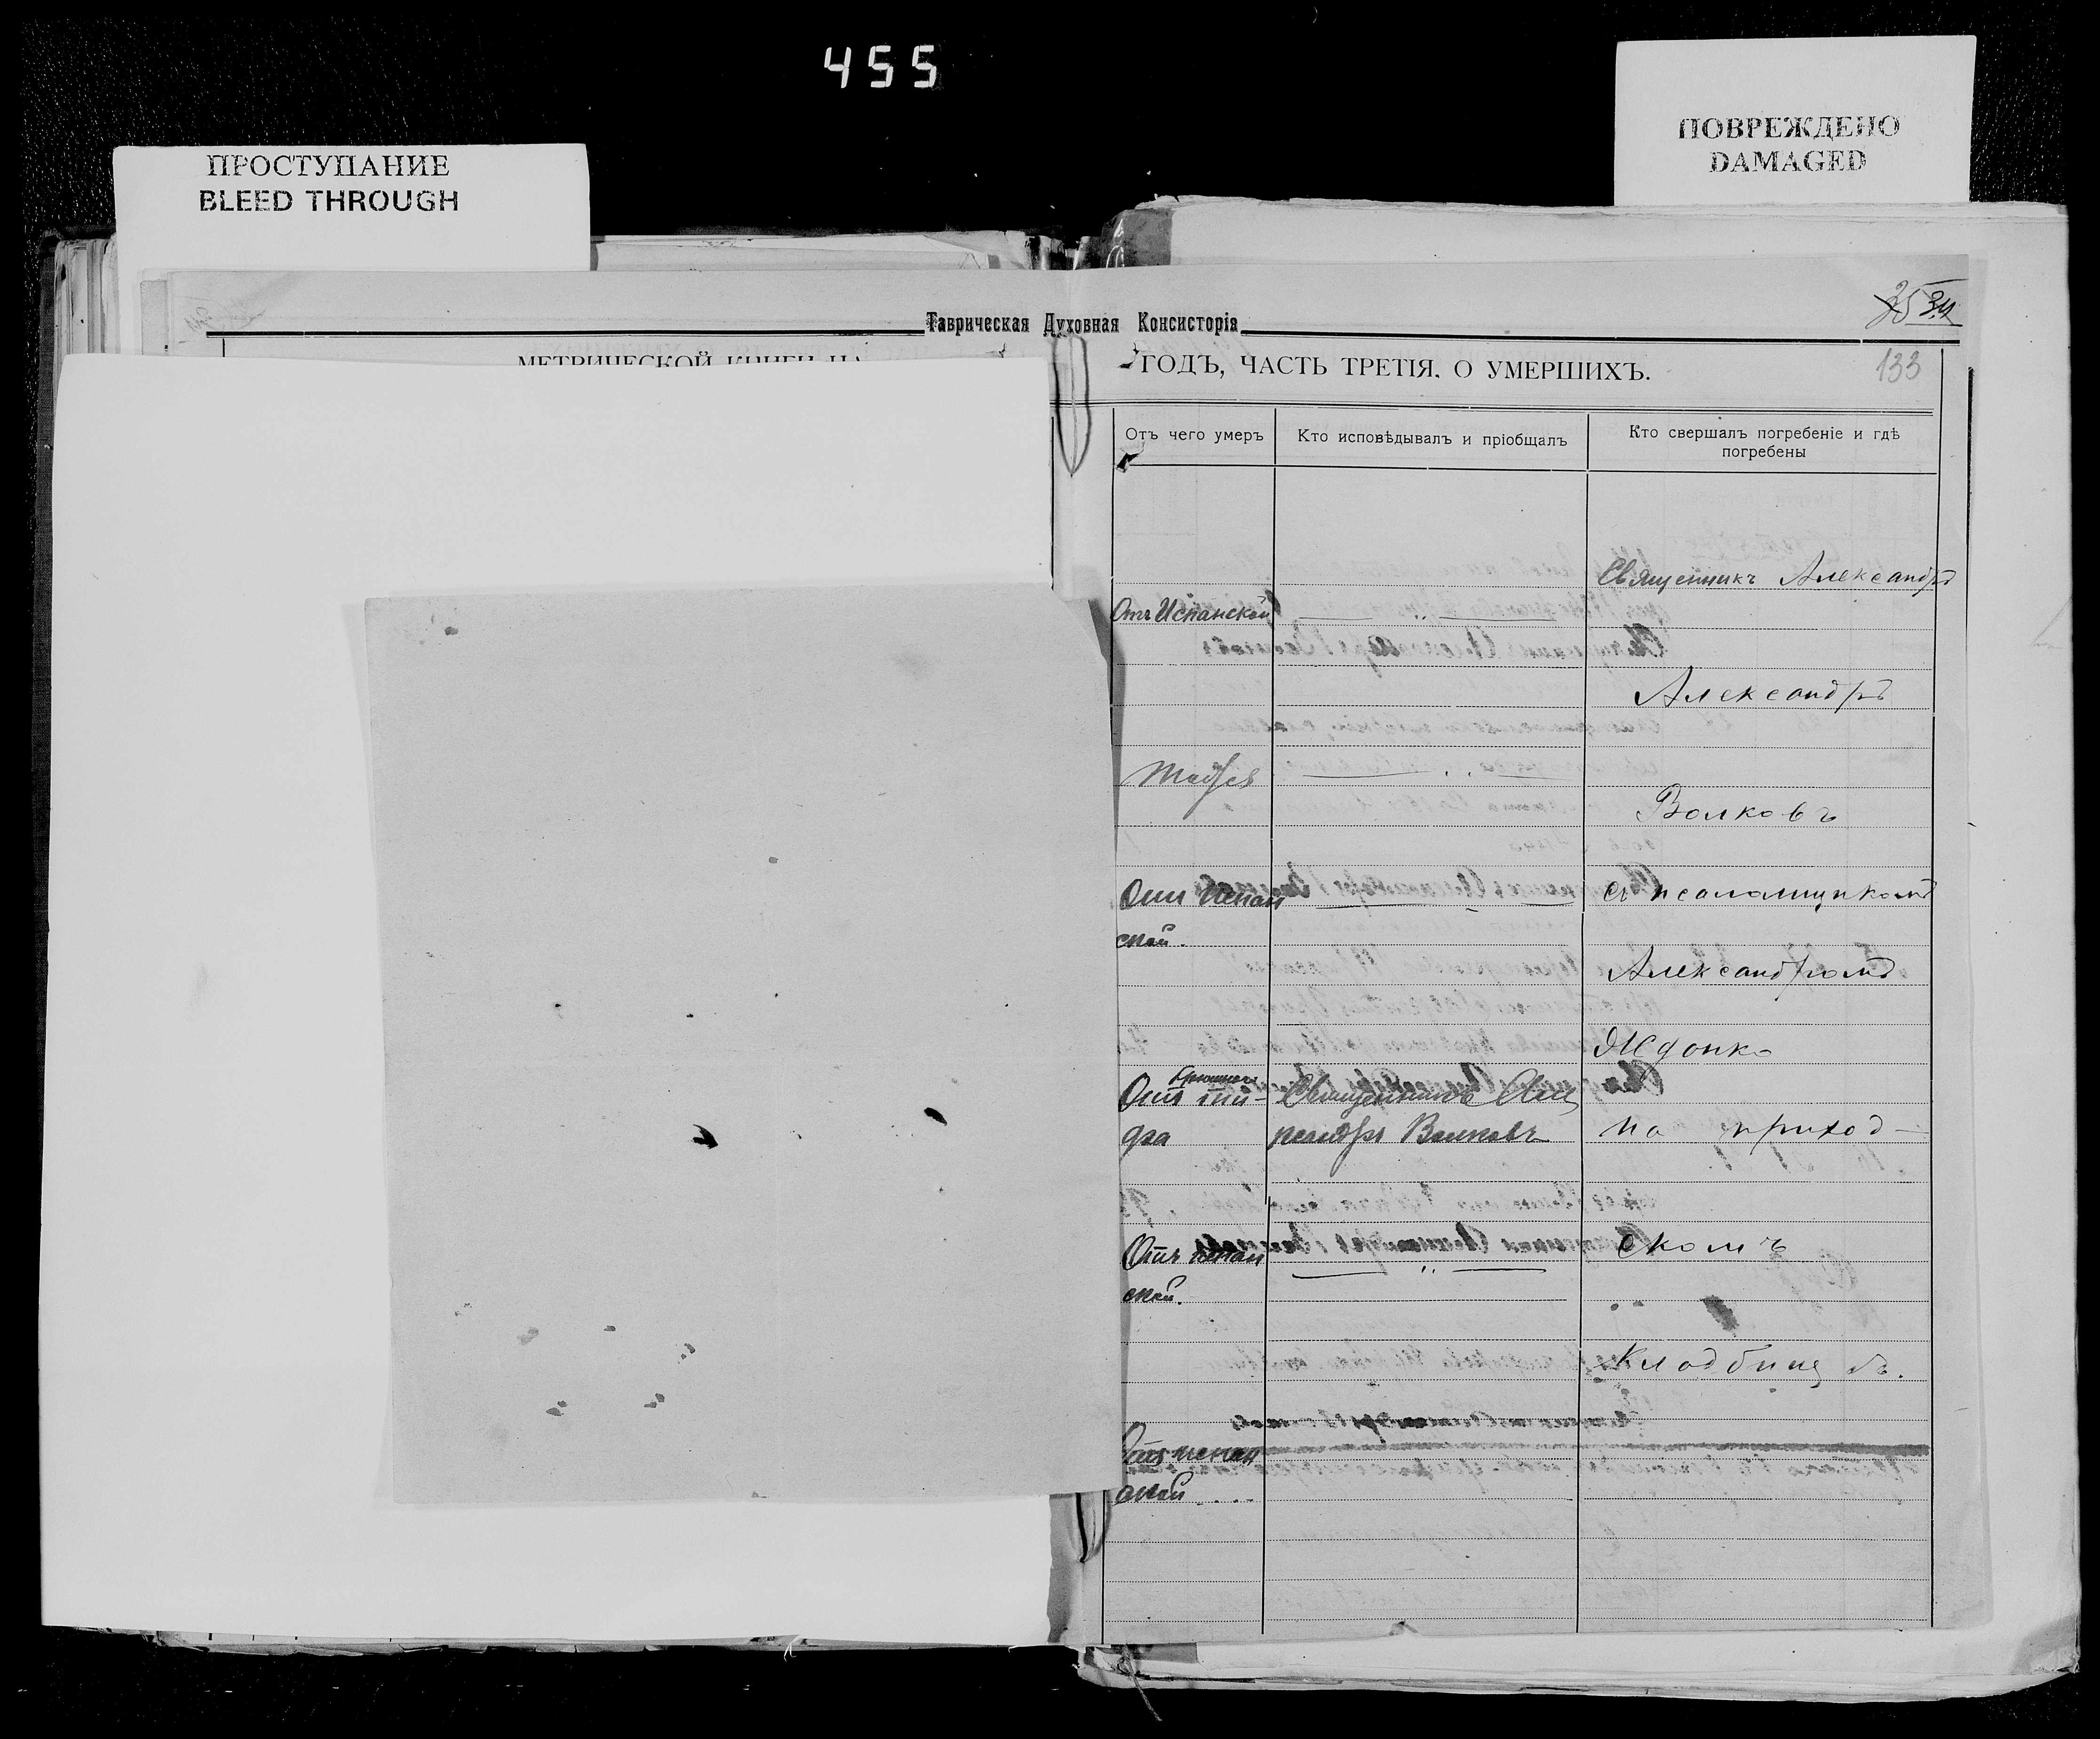 455
ПОВРЕЖДЕНО
DAMAGED
ПРОСТУПАНИЕ
BLEED THROUGH
35 34
Таврическая Духовная Консисторія
МЕТРИЧЕСКОЙ КНИГИ НА
ГОДЪ, ЧАСТЬ ТРЕТІЯ, О УМЕРШИХЪ.
133
Отъ чего умеръ
Кто исповѣдывалъ и пріобщалъ
Кто свершалъ погребеніе и гдѣ
погребены
Священникъ Александръ
Отъ Испанской
Александръ
Волковъ
Отъ испан
ской.
съ псаломщикомъ
Александромъ
Ждонко
брюшного
Отъ ти-
фа
Священникъ Але
ксандръ Волковъ
на приход-
Отъ испан
ской.
скомъ
кладбищѣ.
Отъ испан
ской